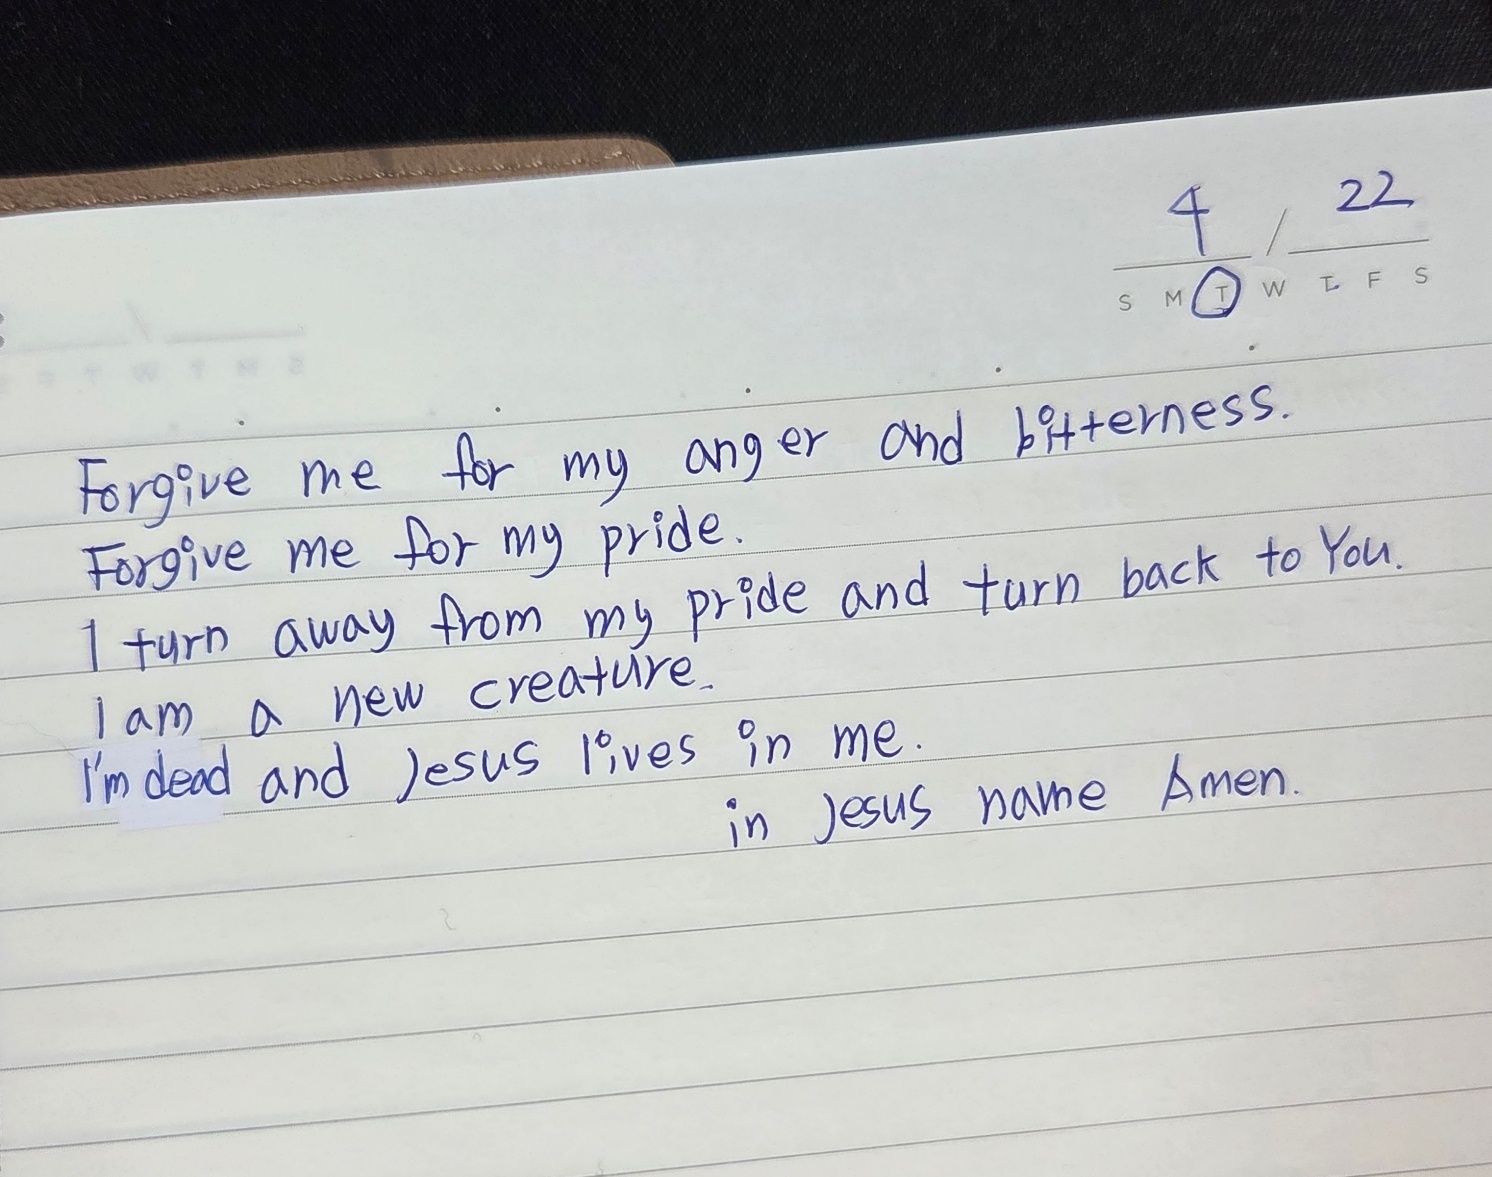 4 / 22
S M T W T F S
Forgive me for my anger and bitterness.
Forgive me for my pride.
I turn away from my pride and turn back to You.
I am a new creature.
I'm dead and Jesus lives in me.
in Jesus name Amen.